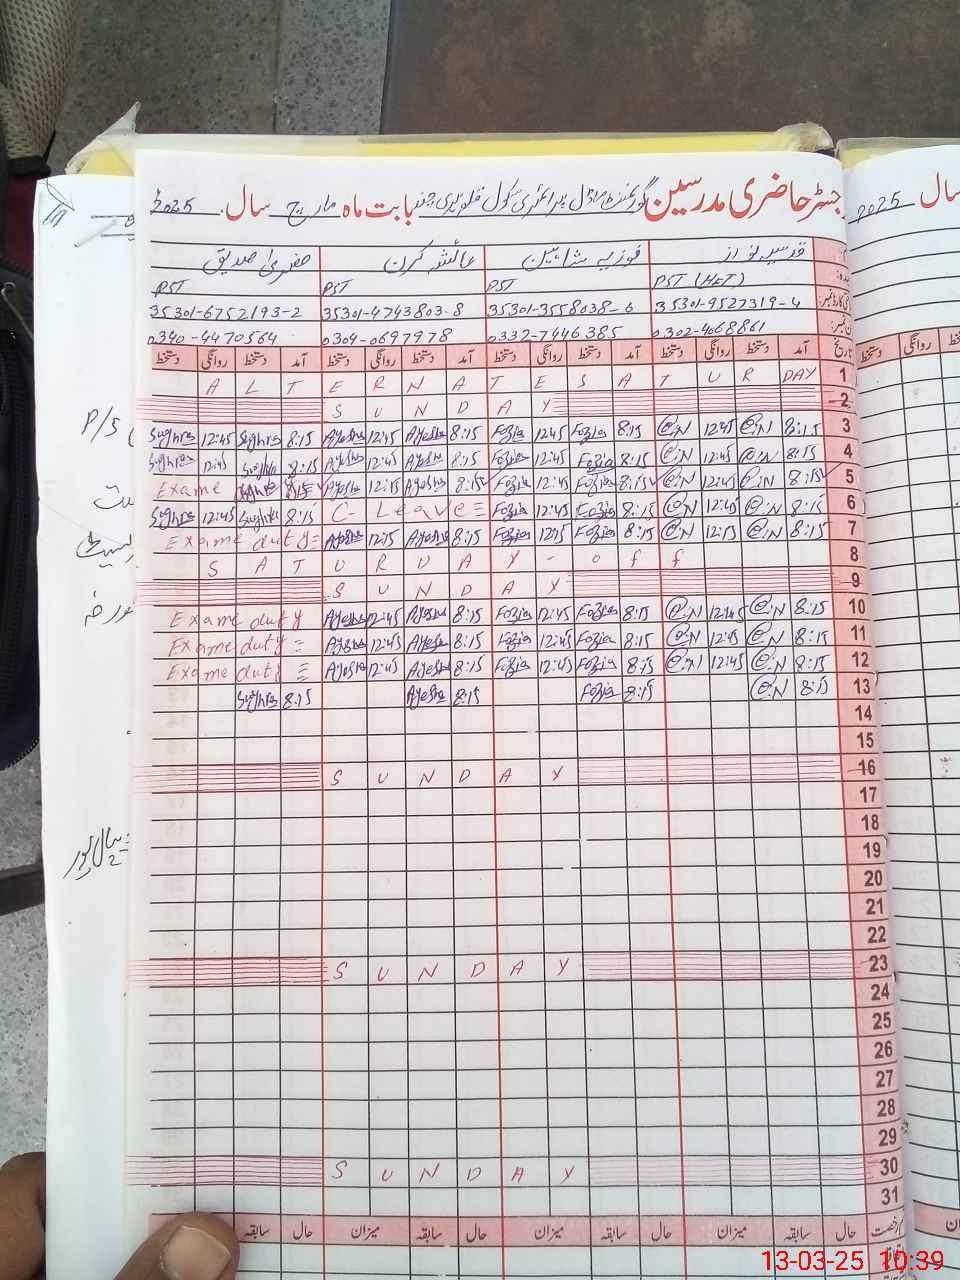 رجسٹر حاضری مدرسین گورنمنٹ ماڈل پرائمری سکول بابت ماہ مارچ سال 2025
سال 2025
قدسیہ نواز فوزیہ شاہین عائشہ کرن صغریٰ صدیق
PST (HET) PST PST PST
35301-9527319-4 35301-3558038-6 35301-4743803-8 35301-6752193-2
0302-4068861 0332-7446385 0304-0697978 0340-4470564
تاریخ آمد دستخط روانگی دستخط آمد دستخط روانگی دستخط آمد دستخط روانگی دستخط آمد دستخط روانگی دستخط
ALTERNATE SATURDAY 1
SUNDAY 2
Sughra 12:45 Sughra 8:15 Ayesha 12:45 Ayesha 8:15 Fozia 12:45 Fozia 8:15 Q.N 12:45 Q.N 8:15 3
Sughra 12:45 Sughra 8:15 Ayesha 12:45 Ayesha 8:15 Fozia 12:45 Fozia 8:15 Q.N 12:45 Q.N 8:15 4
Exame Ayesha 12:15 Ayesha 8:15 Fozia 12:45 Fozia 8:15 Q.N 12:45 Q.N 8:15 5
Sughra 12:45 Sughra 8:15 C- Leave = Fozia 12:45 Fozia 8:15 Q.N 12:45 Q.N 8:15 6
Exame duty = Ayesha 12:15 Ayesha 8:15 Fozia 12:15 Fozia 8:15 Q.N 12:15 Q.N 8:15 7
SATURUAY - off 8
SUNDAY 9
Exame duty Ayesha 12:45 Ayesha 8:15 Fozia 12:45 Fozia 8:15 Q.N 12:45 Q.N 8:15 10
Exame duty = Ayesha 12:45 Ayesha 8:15 Fozia 12:45 Fozia 8:15 Q.N 12:45 Q.N 8:15 11
Exame duty = Ayesha 12:45 Ayesha 8:15 Fozia 12:45 Fozia 8:15 Q.N 12:45 Q.N 8:15 12
Sughra 8:15 Ayesha 8:15 Fozia 8:15 Q.N 8:15 13
14
15
SUNDAY 16
17
18
19
20
21
22
SUNDAY 23
24
25
26
27
28
29
SUNDAY 30
31
رخصت حال سابقہ میزان حال سابقہ میزان حال سابقہ میزان حال سابقہ
P/S
13-03-25 10:39